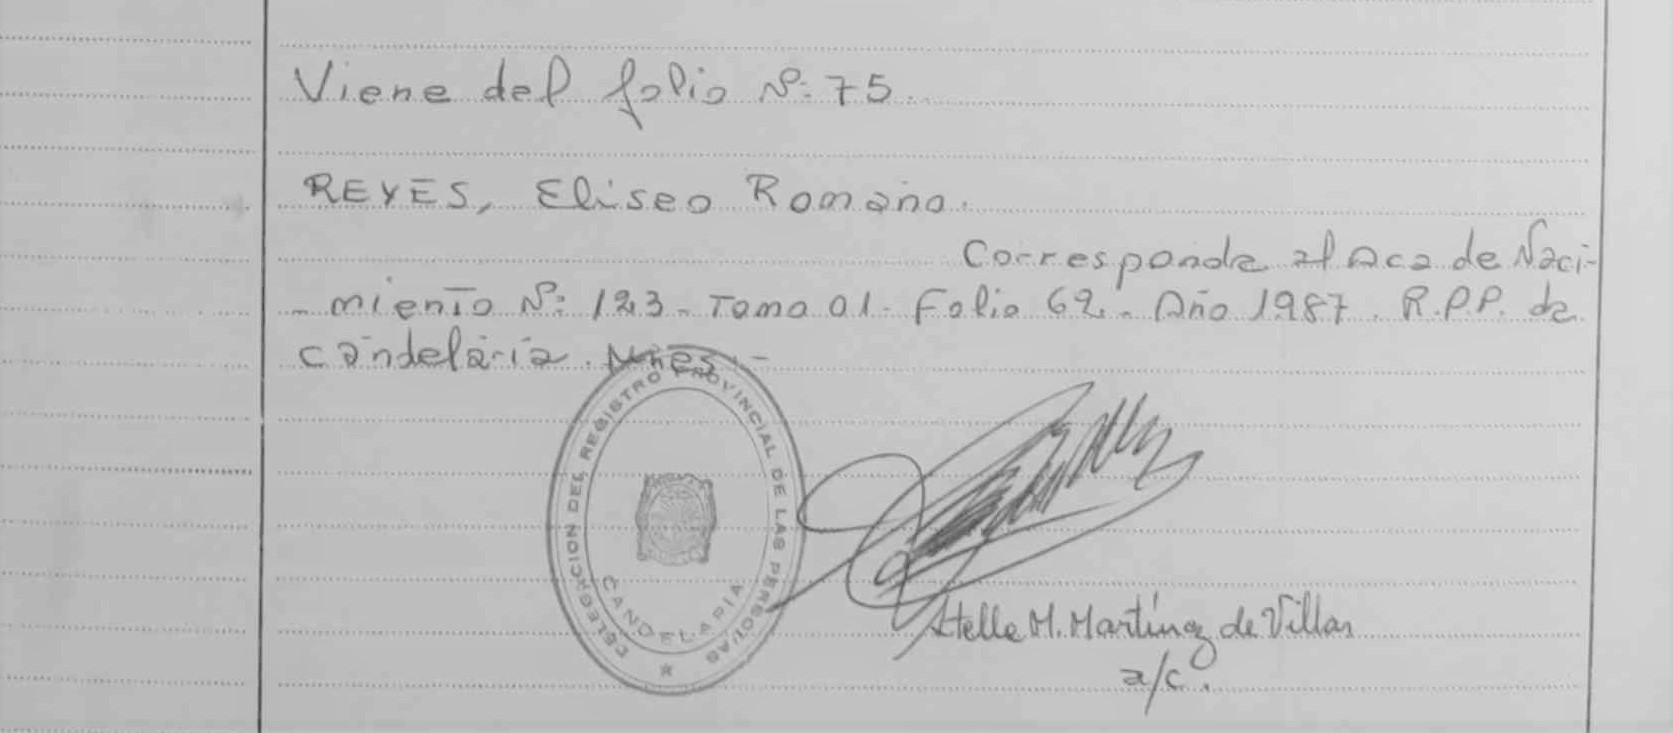 Viene del folio Nº: 75.
REYES, Eliseo Romano.
Corresponde al Aca de Naci-
- miento Nº: 123 - Tomo 01 - Folio 62 - Año 1987. R.P.P. de
candelaria. Mnes. -
DELEGACION DEL REGISTRO PROVINCIAL DE LAS PERSONAS
CANDELARIA
Stella M. Martínez de Villar
a/c.